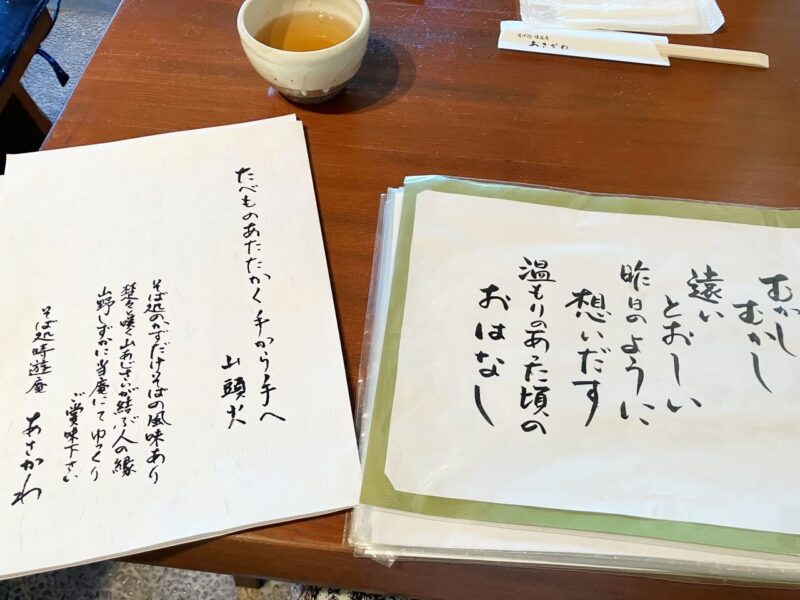 たべものあたたかく手から手へ
山頭火
そば処のかずだけそばの風味あり
楚々と咲く山あじさいが結ぶ人の縁
山野しずかに当庵にてゆっくり
ご賞味下さい
そば処時遊庵
あさかわ
むかし
むかし
遠い
とおーい
昨日のように
想いだす
温もりのあった頃の
おはなし
そば処 時遊庵
あさかわ